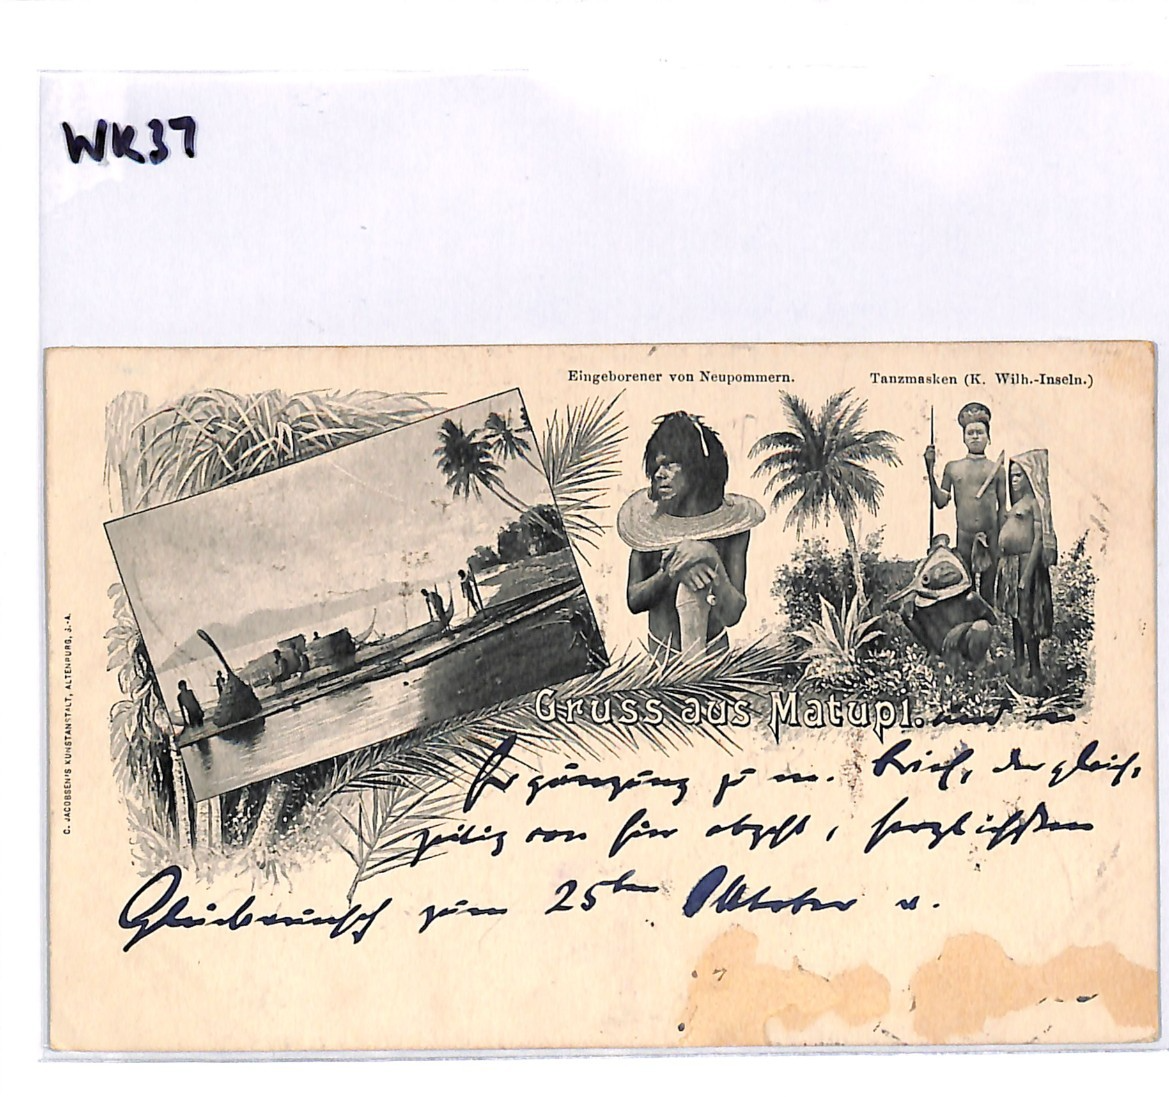 WK37
Eingeborener von Neupommern.
Tanzmasken (K. Wilh.-Inseln.)
C. JACOBSEN'S KUNSTANSTALT, ALTENBURG, S.-A.
Gruss aus Matupi. und in
Ergänzung zu m. Brief, der gleich-
zeitig von hier abgeht, herzlichsten
Glückwunsch zum 25ten Oktober u.